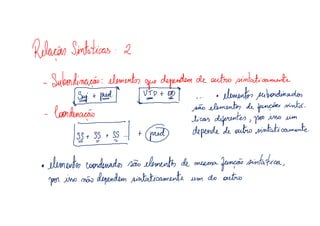 Relação Sintáticas: 2
- Subordinação: elementos que dependem de outro sintaticamente
Suj + pred VTD + OD ... • elementos subordinados
são elementos de funções sintá-
- Coordenação ticas diferentes, por isso um
SS + SS + SS ... + pred depende de outro sintaticamente
• elementos coordenados são elementos de mesma função sintática,
por isso não dependem sintaticamente um do outro